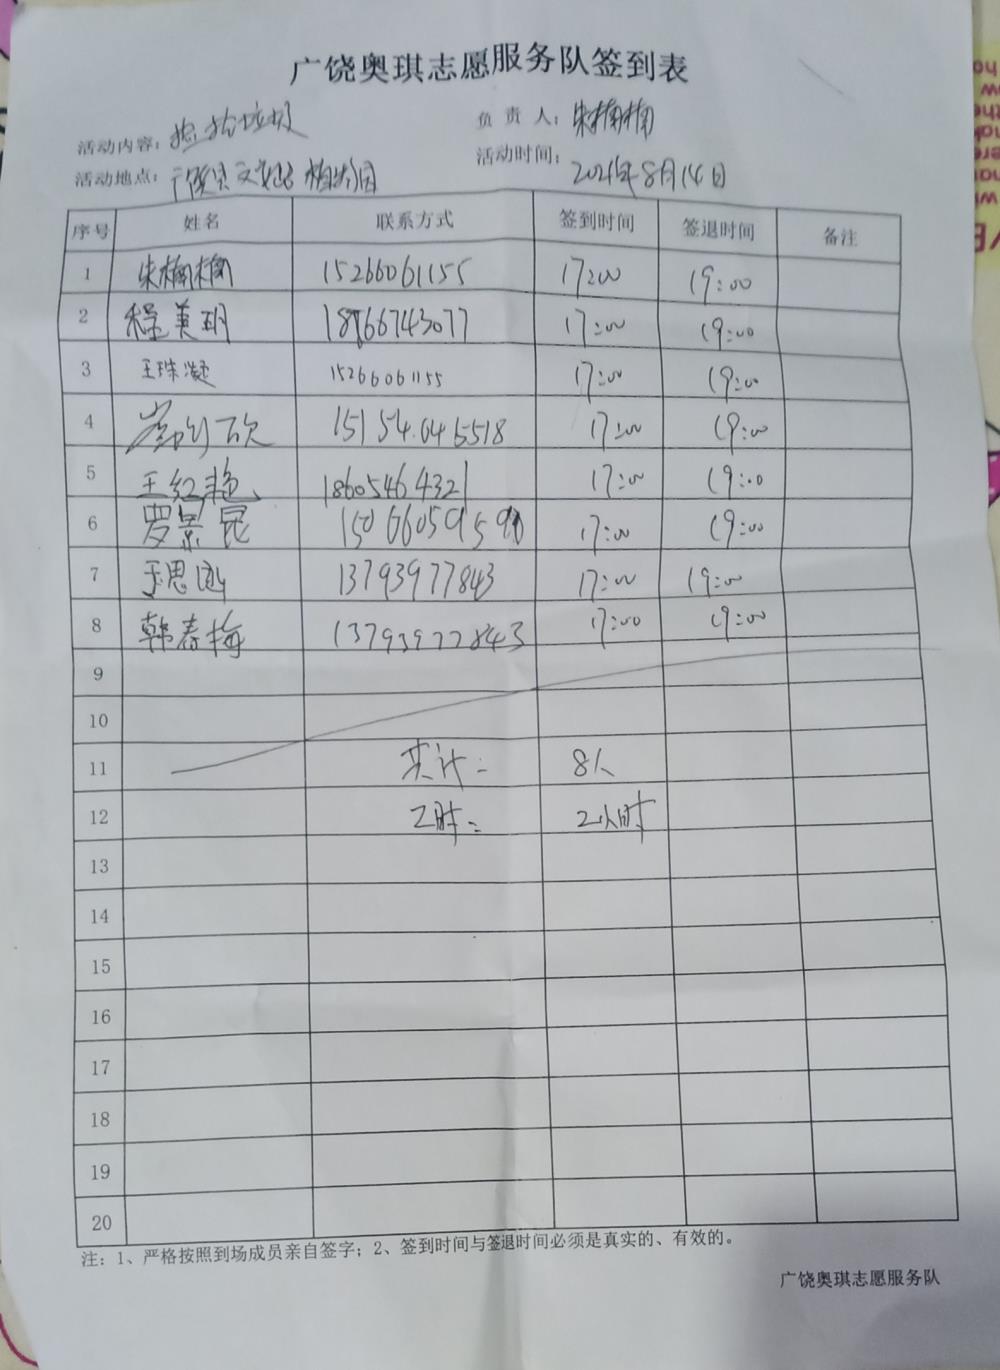 广饶奥琪志愿服务队签到表
活动内容：捡拾垃圾
负责人：朱楠楠
活动地点：广饶县 植物园
活动时间：2021年8月14日
序号 姓名 联系方式 签到时间 签退时间 备注
1 朱楠楠 15266061155 17:00 19:00
2 程美玥 18766743077 17:00 19:00
3 王珠凝 15266061155 17:00 19:00
4 15154645518 17:00 19:00
5 王红艳 18605464321 17:00 19:00
6 罗景昆 17:00 19:00
7 13793977843 17:00 19:00
8 韩春梅 13793977843 17:00 19:00
9
10
11 共计: 8人
12 工时: 2小时
13
14
15
16
17
18
19
20
注：1、严格按照到场成员亲自签字；2、签到时间与签退时间必须是真实的、有效的。
广饶奥琪志愿服务队